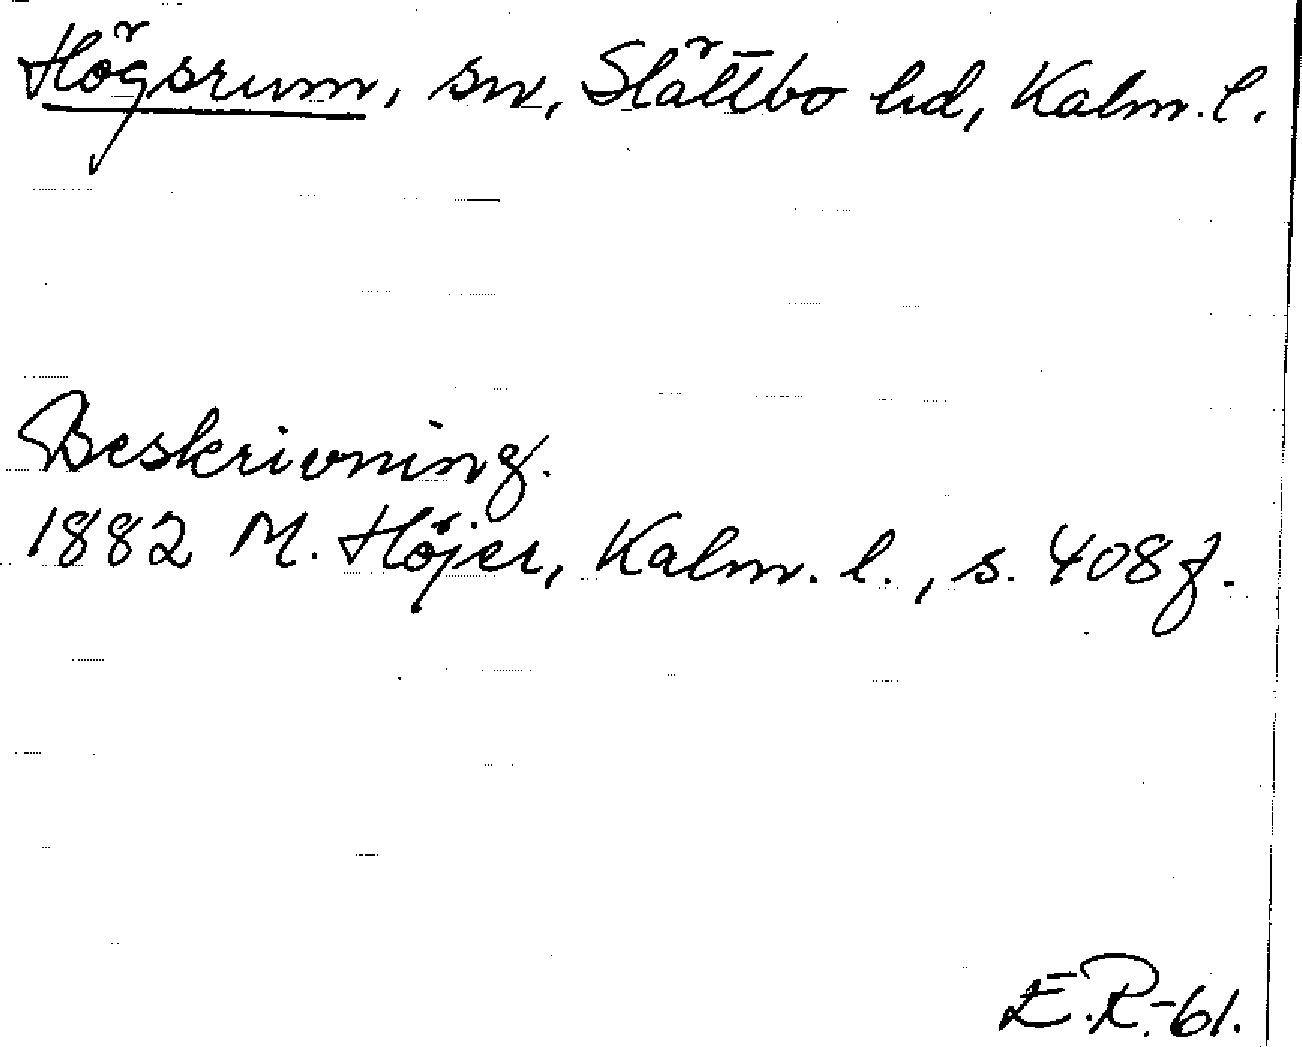 Högsrum, sn, Slättbo hd, Kalm. l.
Beskrivning.
1882 M. Höjer, Kalm. l., s. 408 f.
E.R.-61.